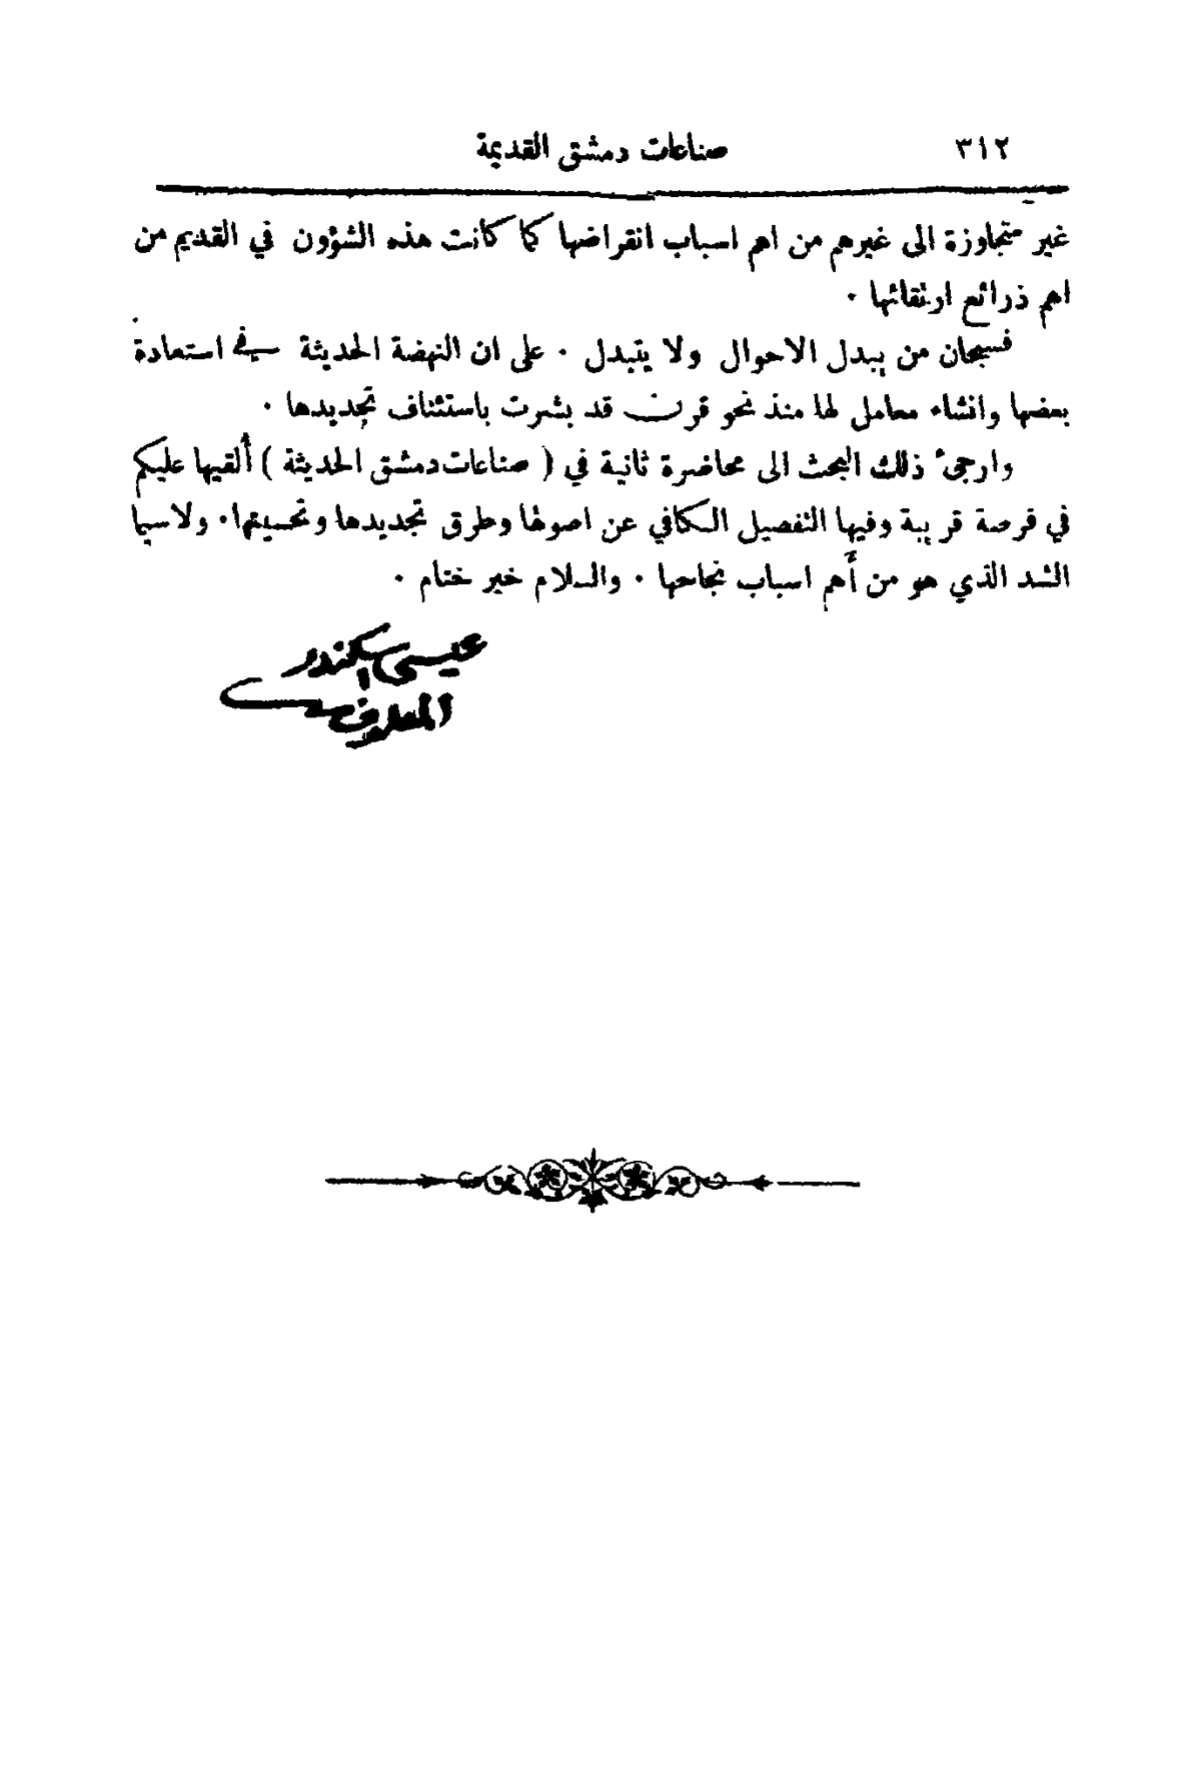 ٣١٢
صناعات دمشق القديمة
غير متجاوزة الى غيرهم من اهم اسباب انقراضها كما كانت هذه الشؤون في القديم من
اهم ذرائع ارتقائها ٠
فسبحان من يبدل الاحوال ولا يتبدل ٠ على ان النهضة الحديثة في استعادة
بعضها وانشاء معامل لها منذ نحو قرن قد بشرت باستئناف تجديدها ٠
وارجئ ذلك البحث الى محاضرة ثانية في ( صناعات دمشق الحديثة ) ألقيها عليكم
في فرصة قريبة وفيها التفصيل الكافي عن اصولها وطرق تجديدها وتحسينها ٠ ولاسيما
الشد الذي هو من أهم اسباب نجاحها ٠ والسلام خير ختام ٠
عيسى اسكندر
المعلوف